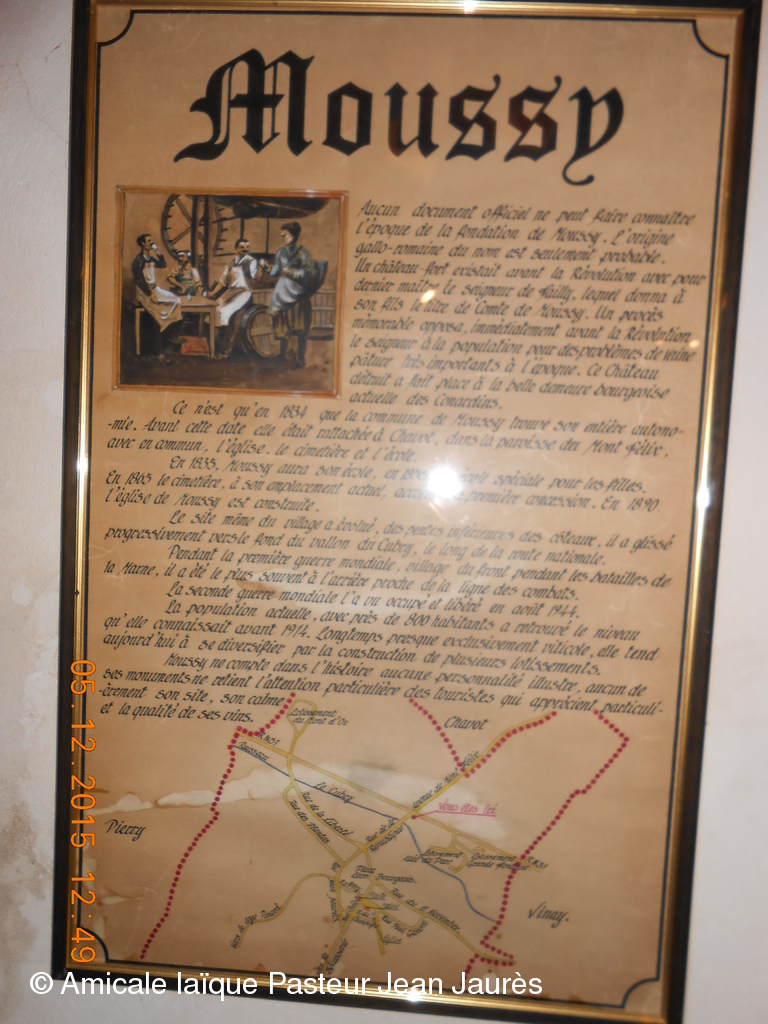 Moussy
Aucun document officiel ne peut faire connaître
l'époque de la fondation de Moussy. L'origine
gallo-romaine du nom est seulement probable.
Un château-fort existait avant la Révolution avec pour
dernier maître le seigneur de Failly, lequel donna à
son fils le titre de Comte de Moussy. Un procès
mémorable opposa, immédiatement avant la Révolution
le seigneur à la population pour des problèmes de vaine
pâture très importants à l'époque. Ce Château
détruit a fait place à la belle demeure bourgeoise
actuelle des Conardins.
Ce n'est qu'en 1834 que la commune de Moussy trouve son entière autono-
-mie. Avant cette date elle était rattachée à Chavot, dans la paroisse du Mont Félix.
avec en commun, l'église, le cimetière et l'école.
En 1835, Moussy aura son école, en école spéciale pour les filles.
En 1865 le cimetière, à son emplacement actuel, première concession. En 1890
l'église de Moussy est construite.
Le site même du village a évolué, des pentes inférieures des côteaux, il a glissé
progressivement vers le fond du vallon du Cubry, le long de la route nationale.
Pendant la première guerre mondiale, village du front pendant les batailles de
la Marne, il a été le plus souvent à l'arrière proche de la ligne des combats.
La seconde guerre mondiale l'a vu occupé et libéré en août 1944.
La population actuelle, avec près de 800 habitants a retrouvé le niveau
qu'elle connaissait avant 1914. Longtemps presque exclusivement viticole, elle tend
aujourd'hui à se diversifier par la construction de plusieurs lotissements.
Moussy ne compte dans l'histoire aucune personnalité illustre, aucun de
ses monuments ne retient l'attention particulière des touristes qui apprécient particuli-
èrement son site, son calme
et la qualité de ses vins.
Lotissement
du Mont d'Or
Chavot
Le Cubry
Vous êtes Ici
Rue de la Liberté
Pierry
Place
Léon Bourgeois
Rue du 11 Novembre
Vinay.
05.12.2015 12:49
© Amicale laïque Pasteur Jean Jaurès